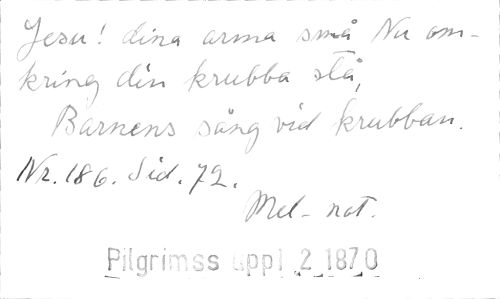 Jesu! dina arma små Nu om-
kring din krubba stå,
Barnens sång vid krubban.
Nr. 186. Sid. 72.
Mel- not.
Pilgrimss uppl 2 1870